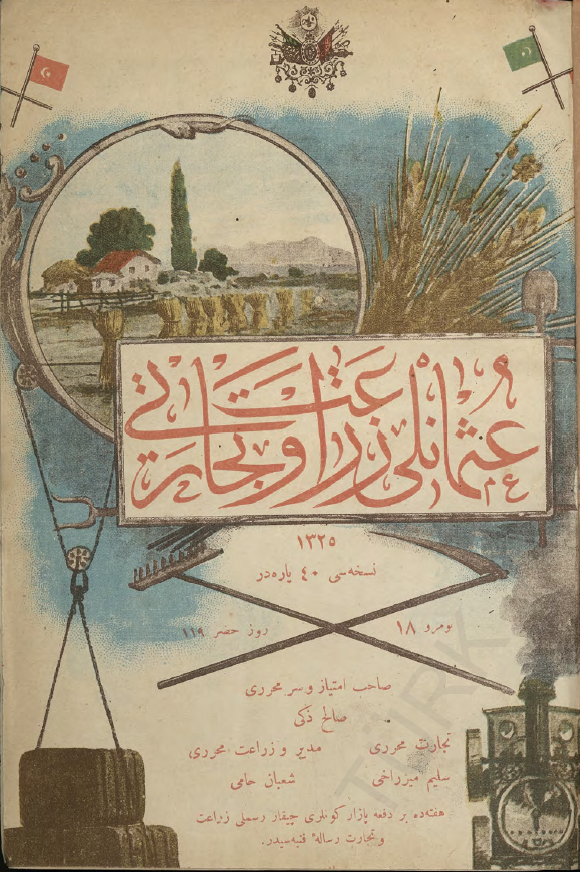 عثمانلی زراعت و تجارتی
١٣٢٥
نسخه‌سی ٤٠ پاره‌در
نومرو ١٨
روز خضر ١١٩
صاحب امتیاز و سر محرری
صالح ذکی
تجارت محرری
مدیر و زراعت محرری
سلیم میزراخی
شعبان حامی
هفته‌ده بر دفعه پازار کونلری چیقار رسملی زراعت
و تجارت رسالهٔ فنیه‌سیدر.
TÜRK